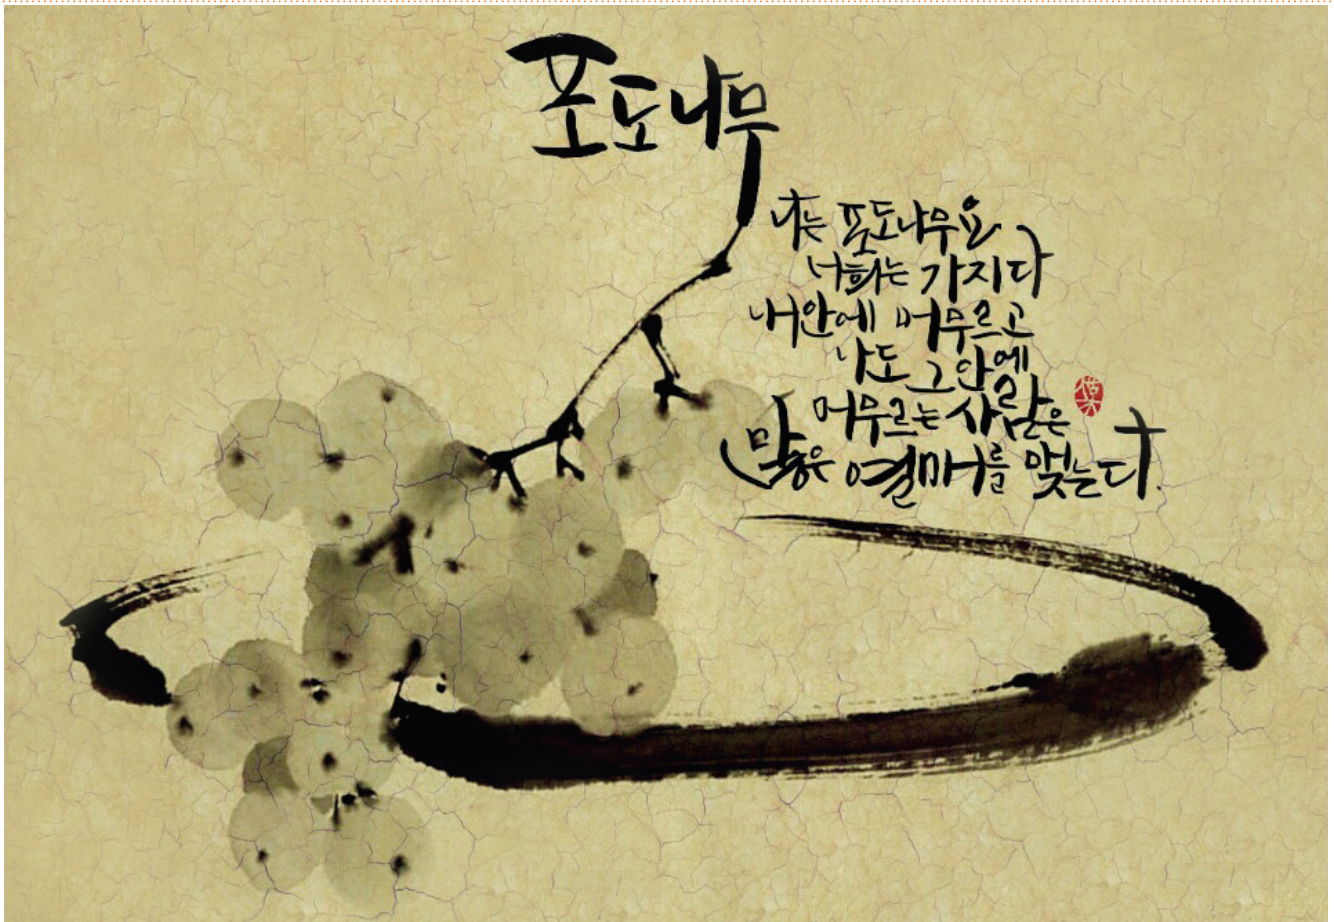 포도나무
나는 포도나무요
너희는 가지다
내안에 머무르고
나도 그안에
머무르는 사람은
많은 열매를 맺는다.